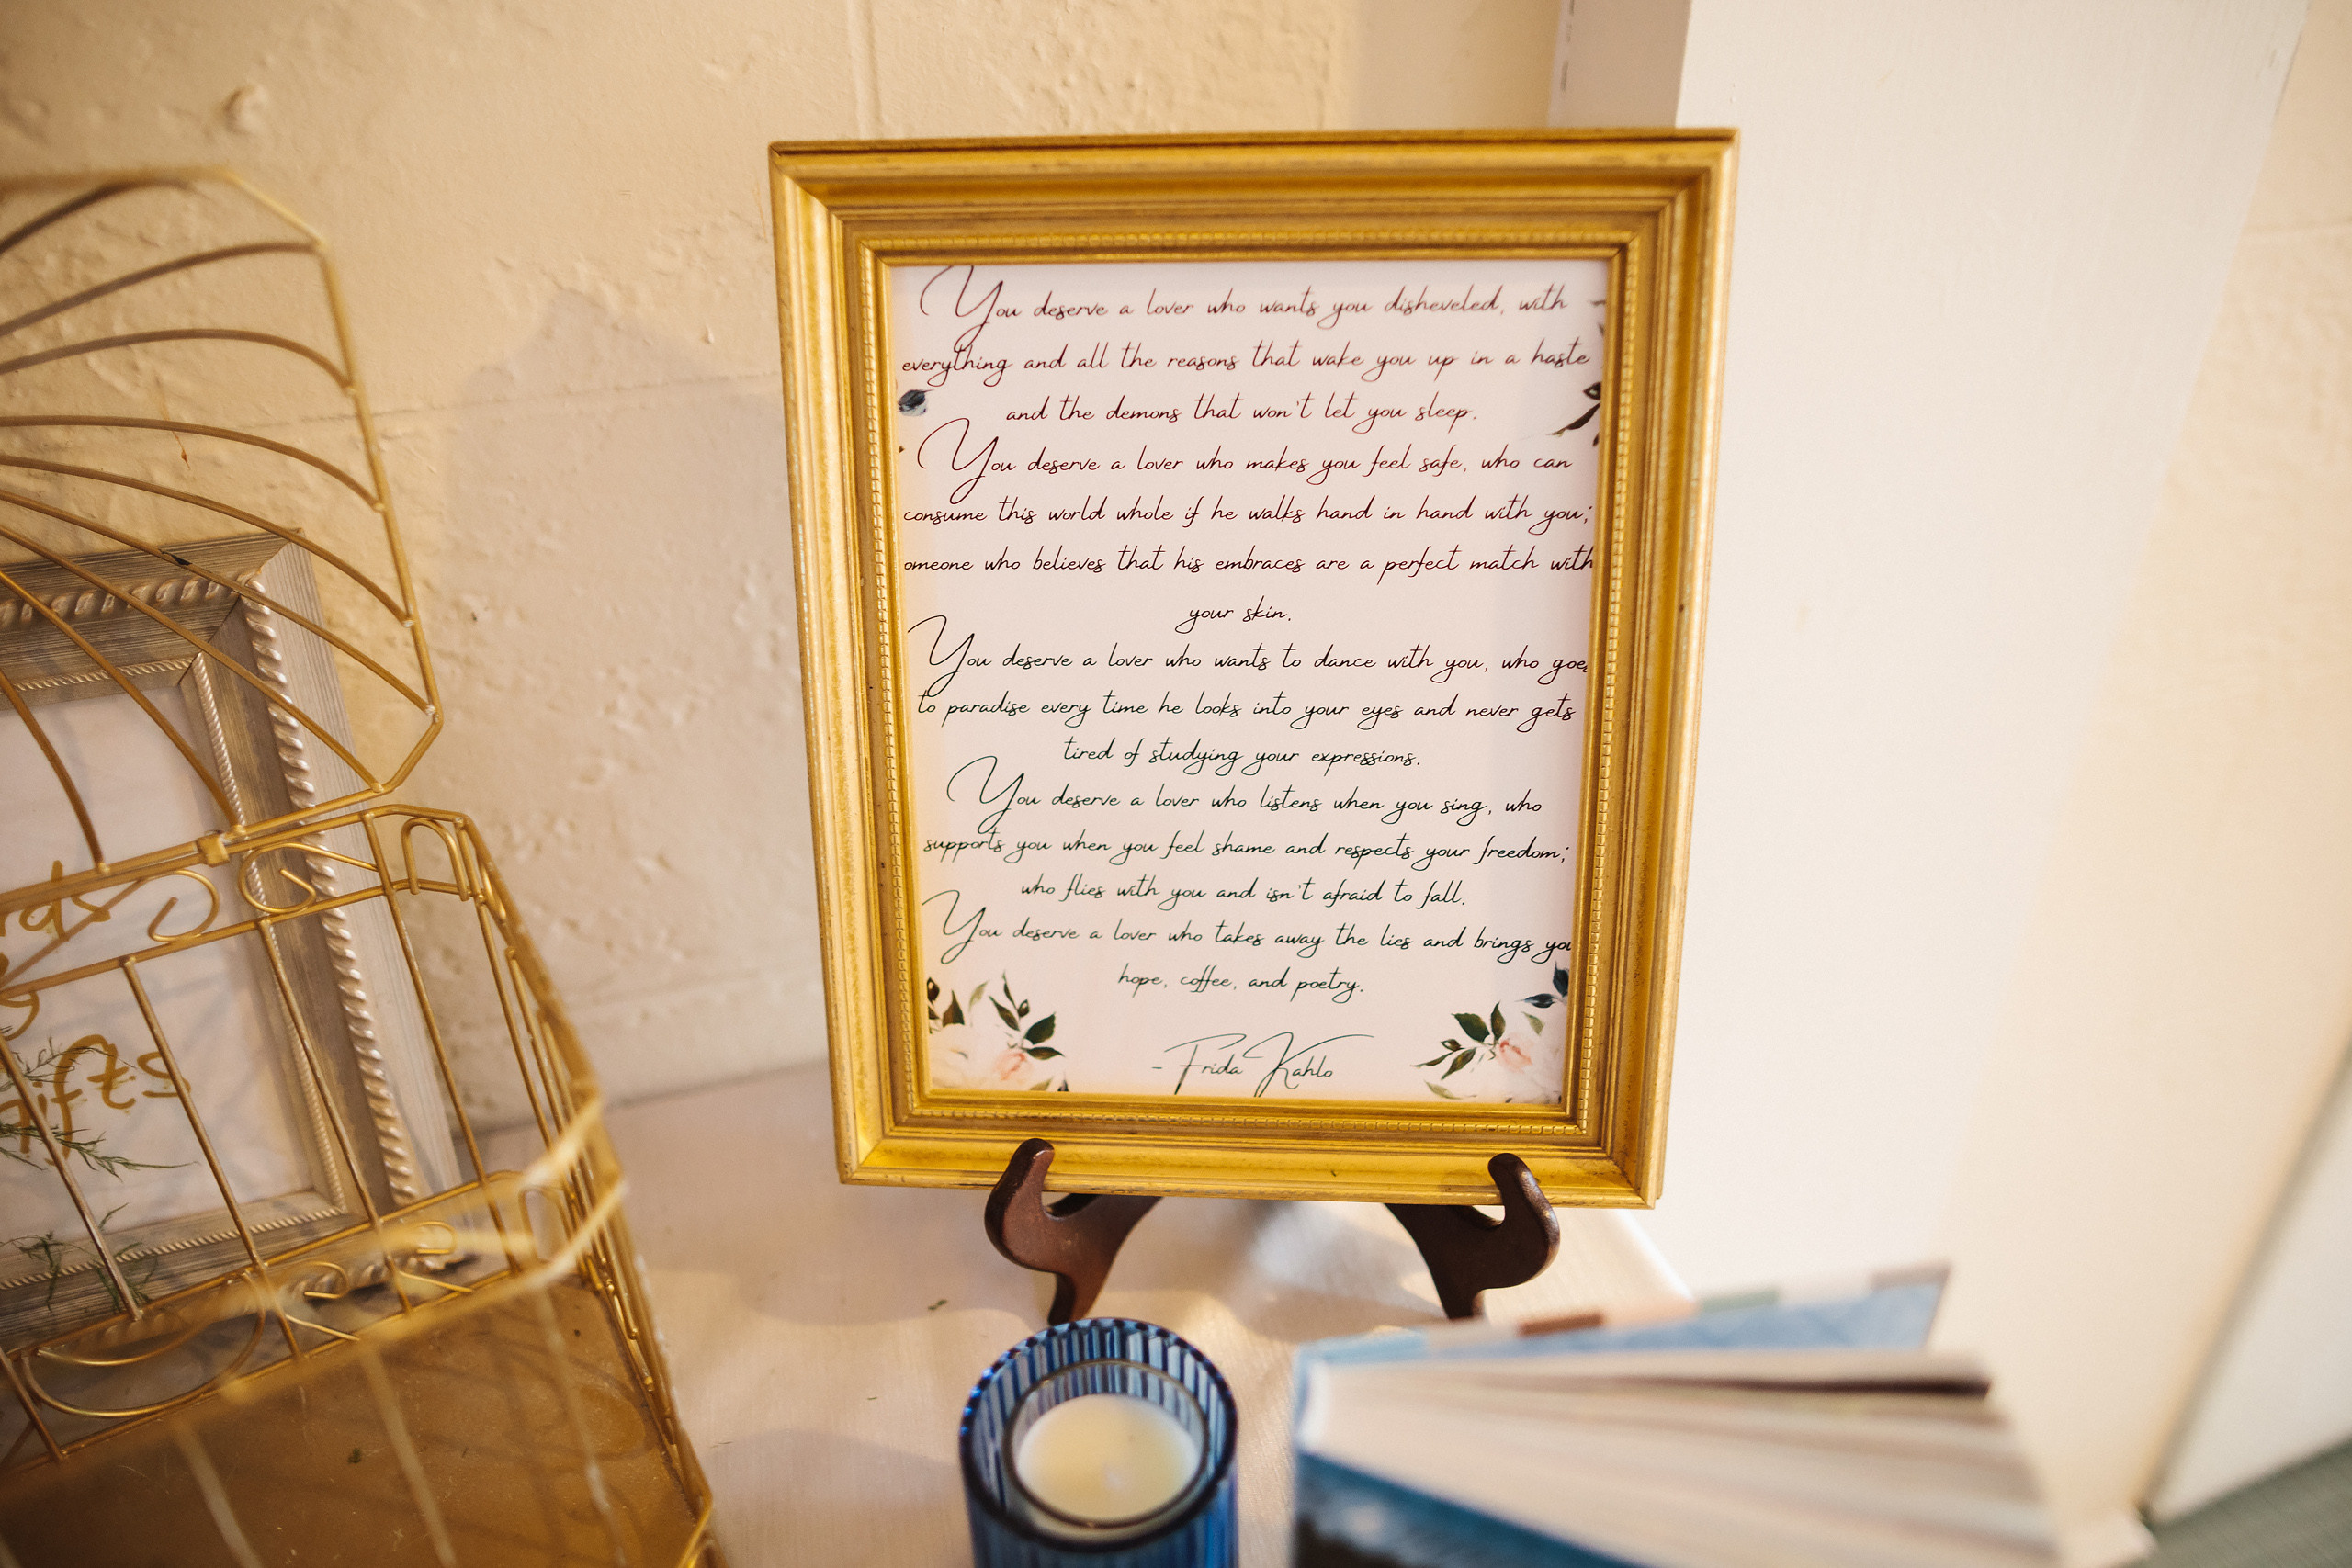 You deserve a lover who wants you disheveled, with
everything and all the reasons that wake you up in a haste
and the demons that won't let you sleep.
You deserve a lover who makes you feel safe, who can
consume this world whole if he walks hand in hand with you;
omeone who believes that his embraces are a perfect match with
your skin.
You deserve a lover who wants to dance with you, who goes
to paradise every time he looks into your eyes and never gets
tired of studying your expressions.
You deserve a lover who listens when you sing, who
supports you when you feel shame and respects your freedom;
who flies with you and isn't afraid to fall.
You deserve a lover who takes away the lies and brings you
hope, coffee, and poetry.
- Frida Kahlo